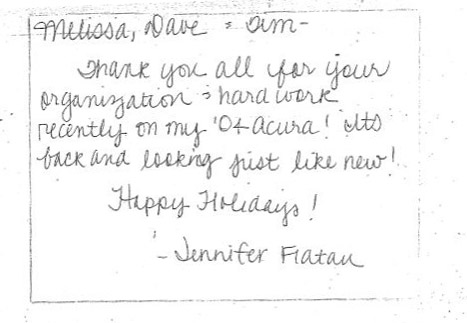 Melissa, Dave & Jim-
Thank you all for your
organization & hard work
recently on my '04 Acura! Its
back and looking just like new!
Happy Holidays!
- Jennifer Flatau